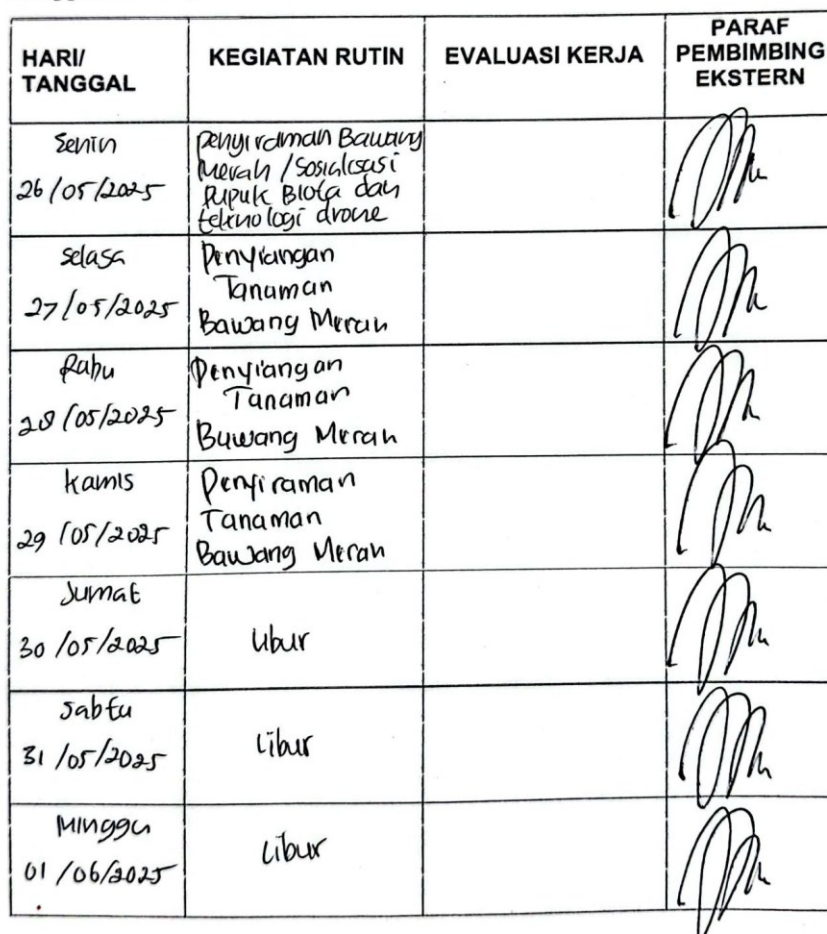 HARI/
TANGGAL
KEGIATAN RUTIN
EVALUASI KERJA
PARAF
PEMBIMBING
EKSTERN
Senin
26/05/2025
Penyiraman Bawang
Merah / Sosialisasi
Pupuk Biota dan
teknologi drone
Selasa
27/05/2025
Penyiangan
Tanaman
Bawang Merah
Rabu
28/05/2025
Penyiangan
Tanaman
Bawang Merah
Kamis
29/05/2025
Penyiraman
Tanaman
Bawang Merah
Jumat
30/05/2025
Libur
Sabtu
31/05/2025
Libur
Minggu
01/06/2025
Libur